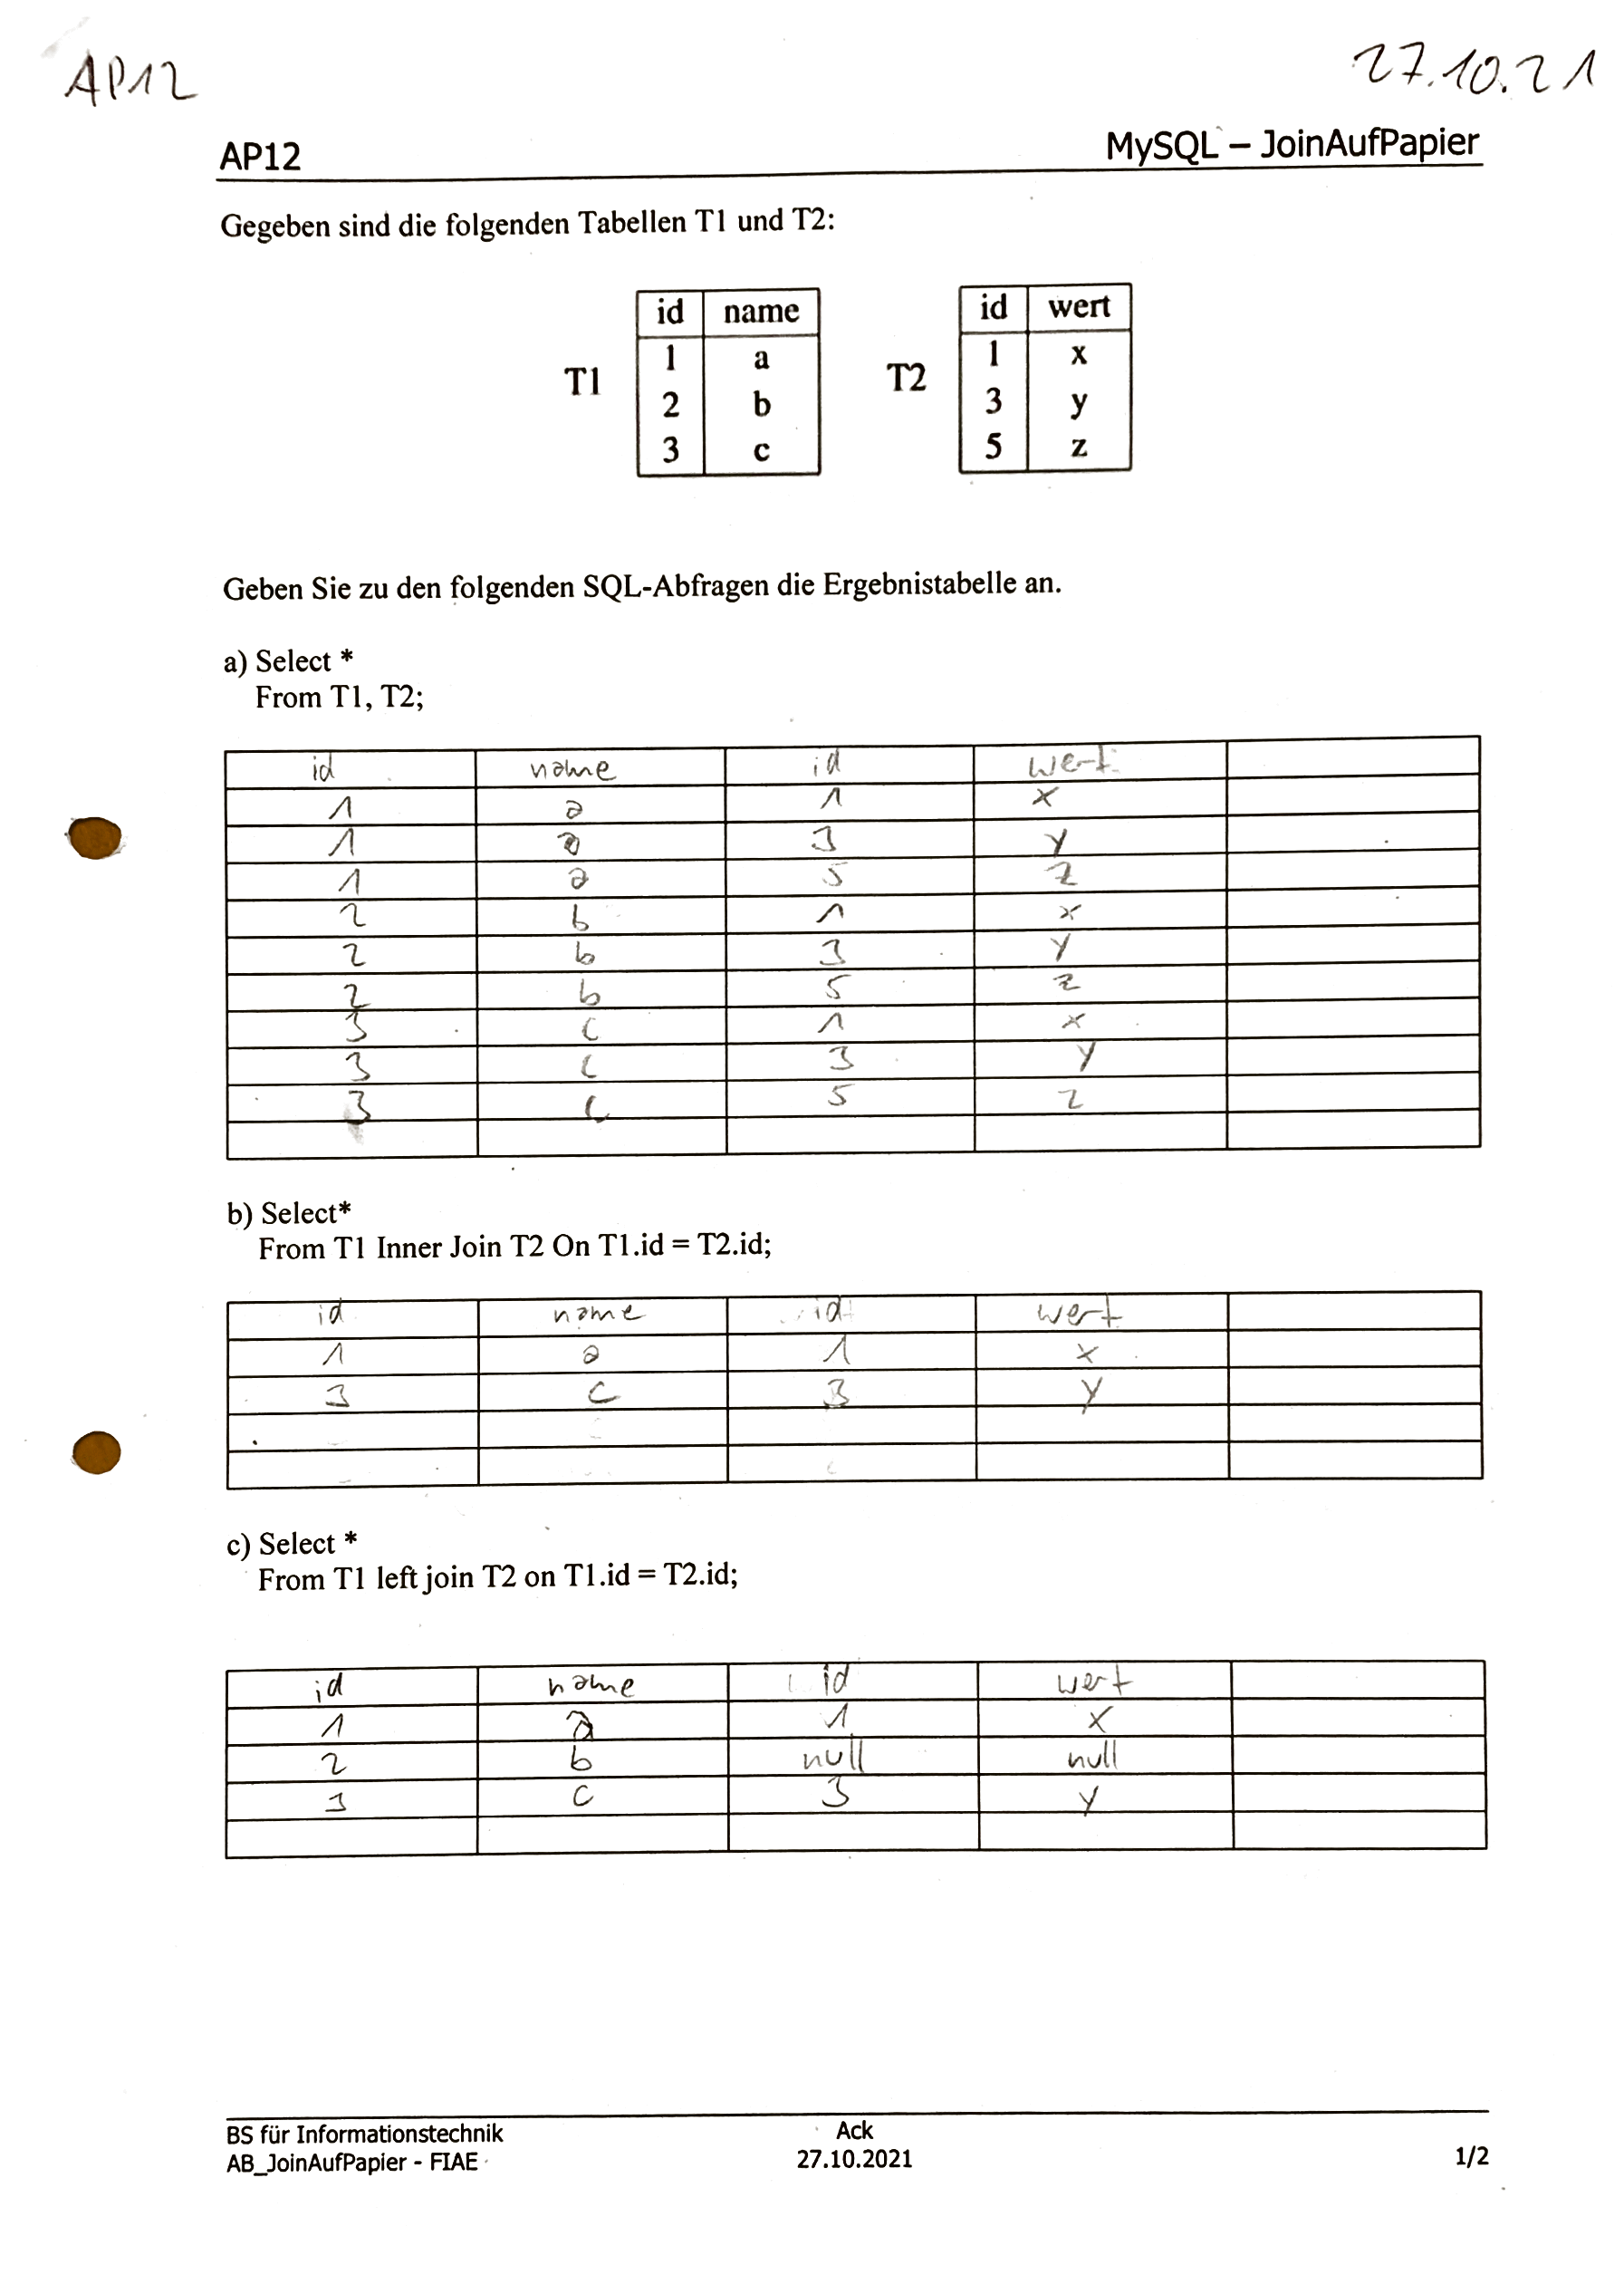 AP12
27.10.21
AP12 MySQL – JoinAufPapier
Gegeben sind die folgenden Tabellen T1 und T2:
T1
id name
1 a
2 b
3 c
T2
id wert
1 x
3 y
5 z
Geben Sie zu den folgenden SQL-Abfragen die Ergebnistabelle an.
a) Select *
From T1, T2;
id name id wert
1 a 1 x
1 a 3 y
1 a 5 z
2 b 1 x
2 b 3 y
2 b 5 z
3 c 1 x
3 c 3 y
3 c 5 z
b) Select*
From T1 Inner Join T2 On T1.id = T2.id;
id name id wert
1 a 1 x
3 c 3 y
c) Select *
From T1 left join T2 on T1.id = T2.id;
id name id wert
1 a 1 x
2 b null null
3 c 3 y
BS für Informationstechnik Ack
AB_JoinAufPapier - FIAE 27.10.2021 1/2